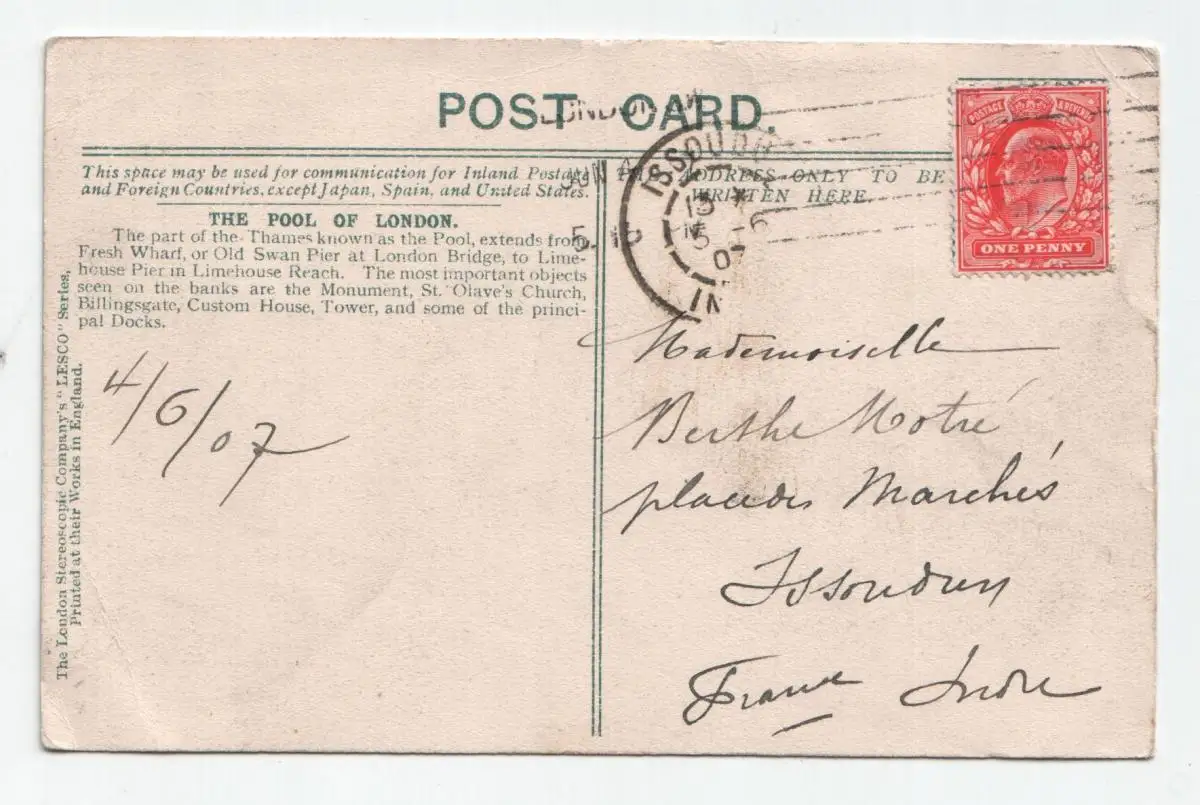 POST CARD.
LONDON. W
This space may be used for communication for Inland Postage
and Foreign Countries, except Japan, Spain, and United States.
ADDRESS ONLY TO BE
WRITTEN HERE.
THE POOL OF LONDON.
The part of the Thames known as the Pool, extends from
Fresh Wharf, or Old Swan Pier at London Bridge, to Lime-
house Pier in Limehouse Reach. The most important objects
seen on the banks are the Monument, St. Olave's Church,
Billingsgate, Custom House, Tower, and some of the princi-
pal Docks.
The London Stereoscopic Company's "LESCO" Series,
Printed at their Works in England.
4/6/07
JUN 4
ISSOUDUN
13
5 -6
POSTAGE & REVENUE
ONE PENNY
Mademoiselle
Berthe Motré
place des Marchés
Issoudun
France Indre